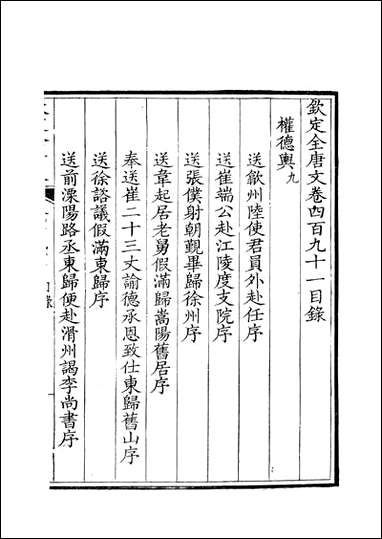 欽定全唐文卷四百九十一目錄
權德輿九
送歙州陸使君員外赴任序
送崔端公赴江陵度支院序
送張僕射朝覲畢歸徐州序
送韋起居老舅假滿歸嵩陽舊居序
奉送崔二十三丈諭德承恩致仕東歸舊山序
送徐諮議假滿東歸序
送前溧陽路丞東歸便赴滑州謁李尚書序